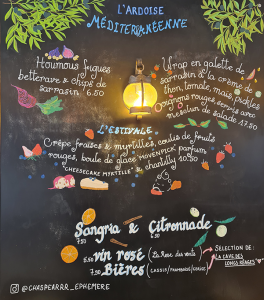 L'ARDOISE
MÉDITERRANÉENNE
Houmous figues
betterave & chips de
sarrasin 6.50
Wrap en galette de
sarrasin & la crème de
thon, tomate, maïs, pickles
d'oignons rouges, servis avec
mesclun de salade 17.50
L'ESTIVALE
Crêpe fraises & myrtilles, coulis de fruits
rouges, boule de glace MOVENPICK parfum
"CHEESECAKE MYRTILLE" & chantilly 10.50
Sangria & Citronnade
7.50
6.50 vin rosé (La Rose des vents)
7.50 Bières (CASSIS/FRAMBOISE/CERISE)
SÉLECTION DE:
LA CAVE DES
LONGS RÂGES
@CHASPEARRR_EPHEMERE